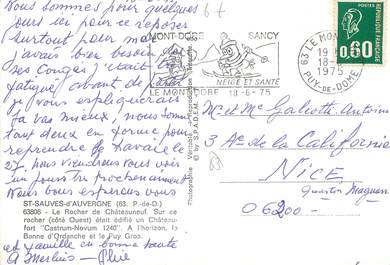 Nous sommes pour quelques
jours ici pour se reposer
surtout pour moi
j'avais bien besoin
ses congés j'étais
fatigué, avant de
je vous expliquerais
ça vas mieux, nous sommes
tout deux en forme pour
reprendre le travail le
27. nous viendrons vous voir
un jour très prochainement
Nous vous espérons vous
et famille en bonne santé
67
MONT-DORE SANCY
NEIGE ET SANTÉ
LE MONT DORE 18-6-75
63 LE MONT
18-6
1975
PUY-DE-DOME
REPUBLIQUE FRANÇAISE
0,60
POSTES
Mr et Mme Galeotti Antoine
3 Av. de la Californie
NICE
Quartier Magnan
06200
Photographie Véritable
ST-SAUVES-d'AUVERGNE (63. P.-de-D.)
63806 - Le Rocher de Châteauneuf. Sur ce
rocher (côté Ouest) était édifié un Château-
fort "Castrum-Novum 1240". A l'horizon, la
Banne d'Ordanche et le Puy Gros.